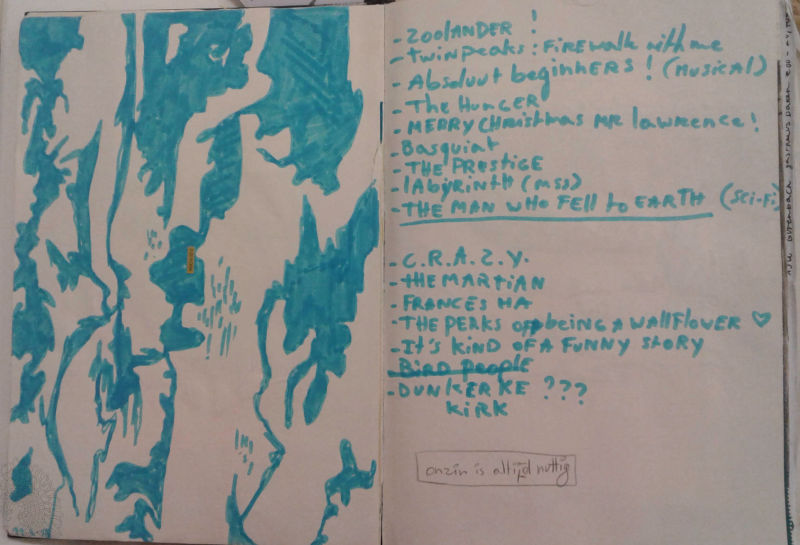 - ZOOLANDER !
- twin peaks : FIRE walk with me
- Absoluut beginners ! (musical)
- The HUNGER
- MERRY CHRISTMAS MR lawrence !
- Basquiat
- THE PRESTIGE
- labyrinth (mss)
- THE MAN WHO FELL to EARTH (sci-fi)
- C.R.A.Z.Y.
- THE MARTIAN
- FRANCES HA
- THE PERKS OF being A WALLFLOWER ♡
- It's kind OF A FUNNY STORY
- BIRD PEOPLE
- DUNKERKE ???
KIRK
onzin is altijd nuttig